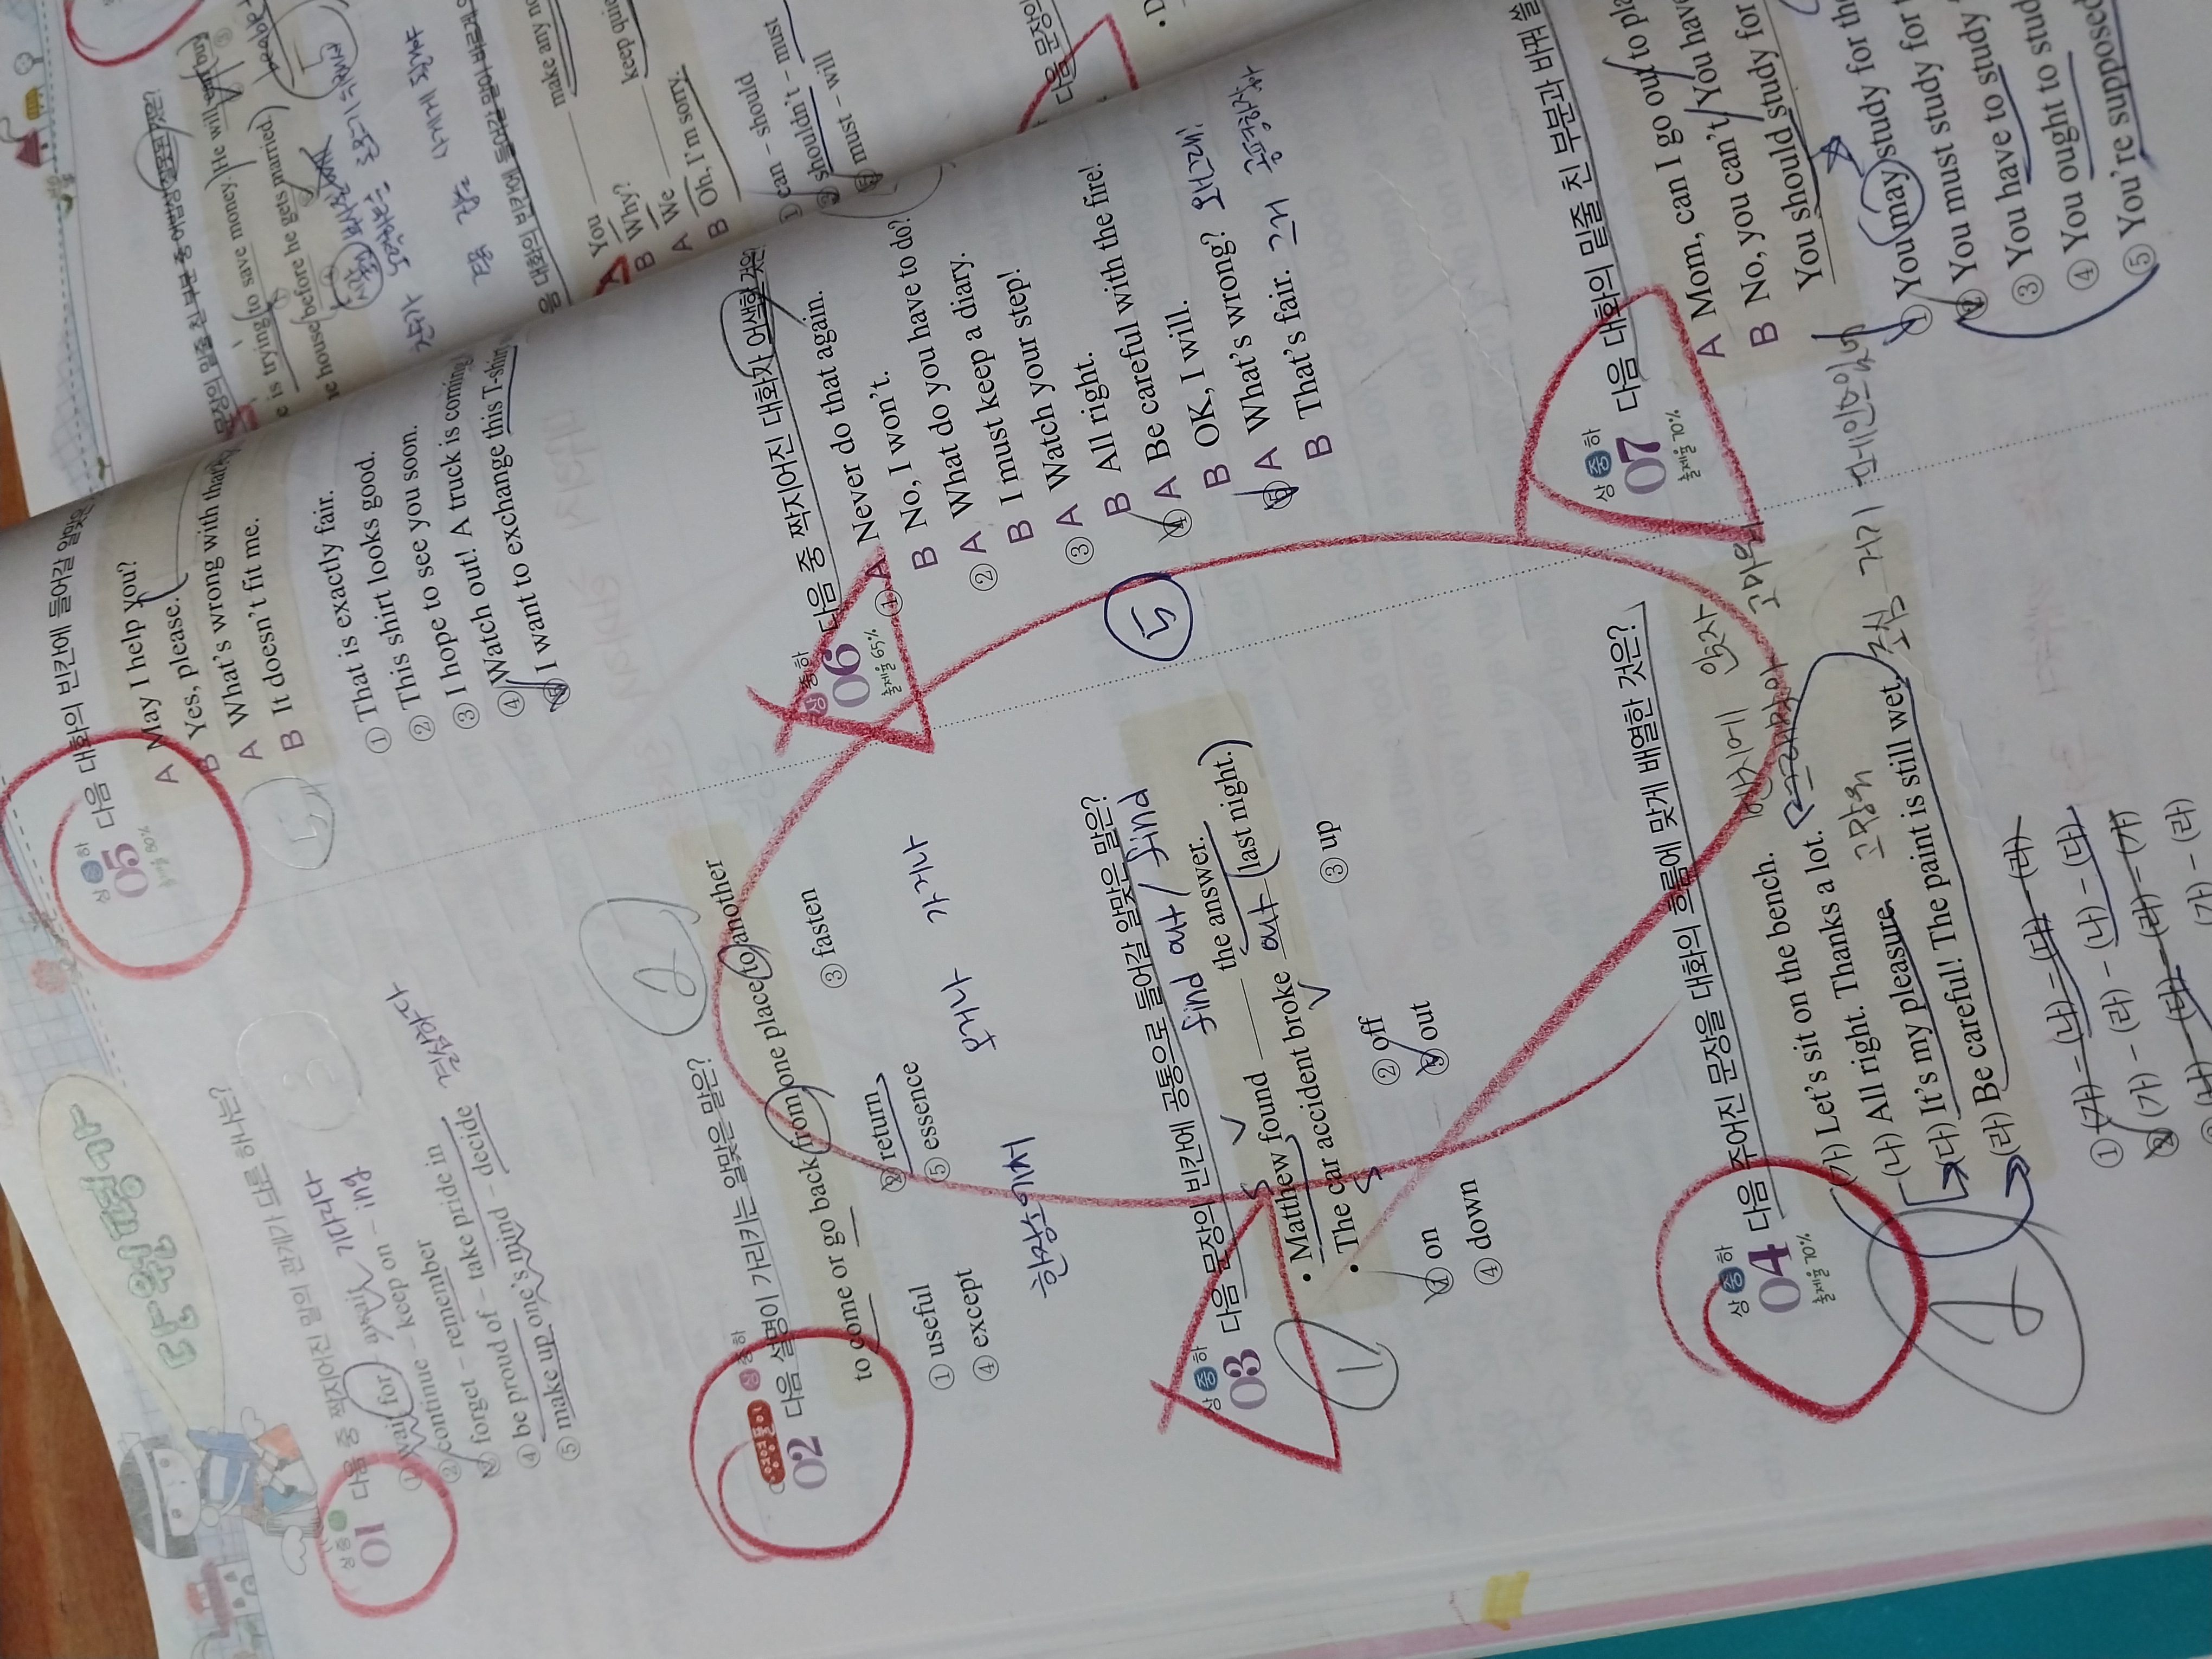 단원평가
상 중 하
01 다음 중 짝지어진 말의 관계가 다른 하나는?
① wait for - await 기다리다
② continue - keep on - ing
③ forget - remember
④ be proud of - take pride in
⑤ make up one's mind - decide 결심하다
3
상 중 하
02 다음 설명이 가리키는 말로 알맞은 말은?
to come or go back from one place to another
① useful ② return ③ fasten
④ except ⑤ essence
한장소에서 오거나 가거나
2
상 중 하
03 다음 문장의 빈칸에 공통으로 들어갈 알맞은 말은?
find out / find
• Matthew found the answer.
• The car accident broke out last night.
① on ② off ③ up
④ down ⑤ out
1
상 중 하
04 다음 주어진 문장을 대화의 흐름에 맞게 배열한 것은?
출제율 70%
벤치에 앉자
(가) Let's sit on the bench.
(나) All right. Thanks a lot. 고마워
(다) It's my pleasure. 고맙워
(라) Be careful! The paint is still wet. 조심 거기
① (가) - (나) - (다) - (라)
② (가) - (라) - (나) - (다)
(나) - (다) - (라) - (가)
(가) - (라)
2
상 중 하
05 다음 대화의 빈칸에 들어갈 알맞은
출제율 80%
A May I help you?
B Yes, please.
A What's wrong with that
B It doesn't fit me.
① That is exactly fair.
② This shirt looks good.
③ I hope to see you soon.
④ Watch out! A truck is coming
⑤ I want to exchange this T-shirt
5
상 중 하
06 다음 중 짝지어진 대화가 어색한 것은?
출제율 65%
① A Never do that again.
B No, I won't.
② A What do you have to do?
B I must keep a diary.
③ A Watch your step!
B All right.
④ A Be careful with the fire!
B OK, I will.
⑤ A What's wrong? 왜그래!
B That's fair. 그거 공평하자
5
상 중 하
07 다음 대화의 밑줄 친 부분과 바꿔 쓸
출제율 70%
A Mom, can I go out to pla
B No, you can't. You have
You should study for
① You may study for the
② You must study for t
③ You have to study
④ You ought to stud
⑤ You're supposed
문장의 밑줄 친 부분 중 어법상
e is trying to save money. He will
e house before he gets married.
people
다음 대화의 빈칸에 들어갈 말이 바르게
A You make any no
B Why?
A We keep quie
B Oh, I'm sorry.
① can - should
② shouldn't - must
must - will
다음 문장의